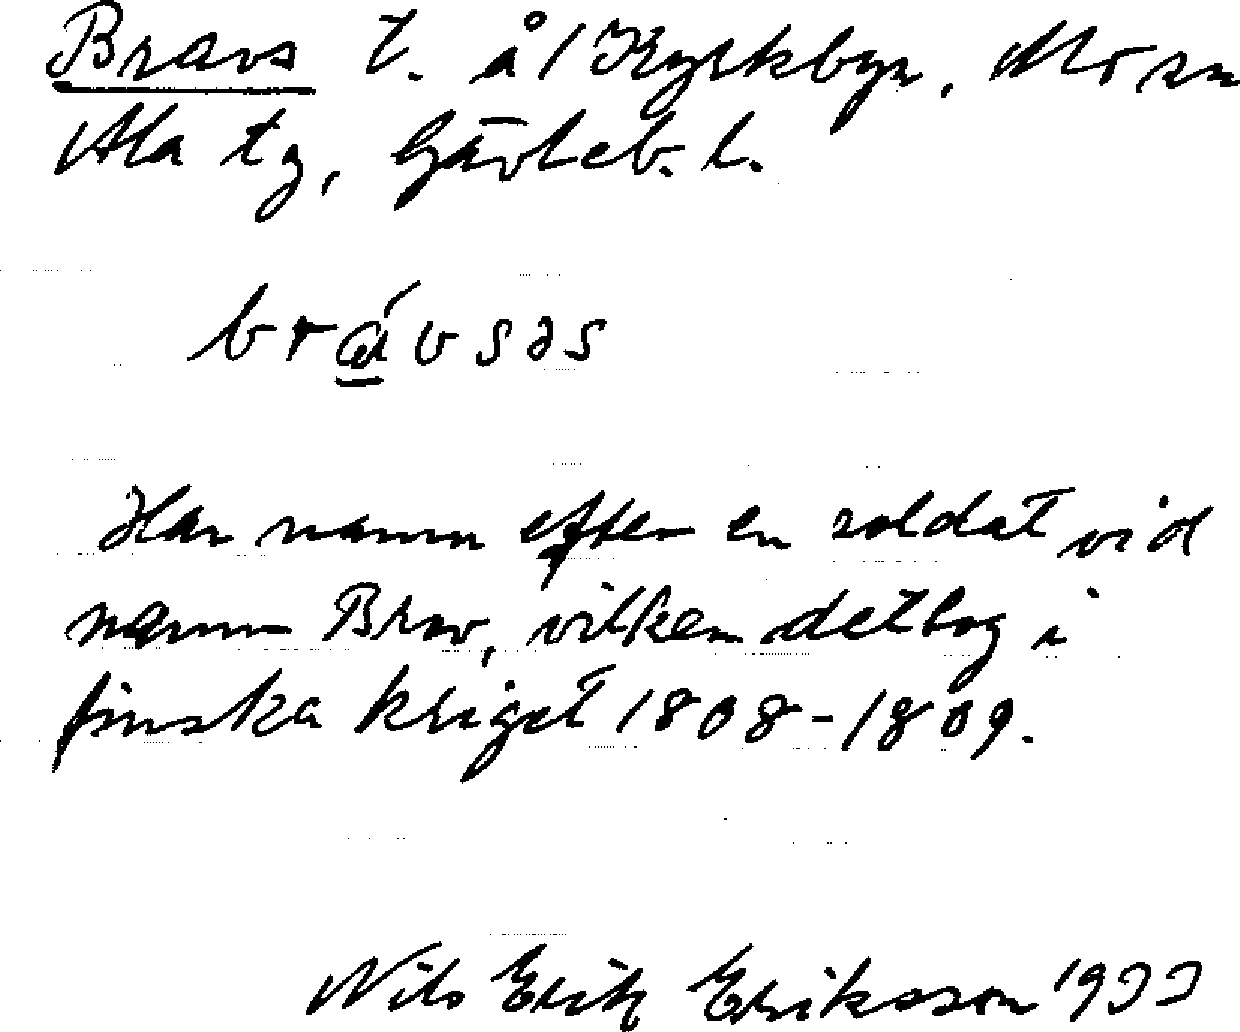 Bravs t. å/Kyrkbyn, Mo sn
Ala tg, Gävleb. l.
brɑ́vsəs
Har namn efter en soldat vid
namn Brav, vilken deltog i
finska kriget 1808-1809.
Nils Erik Eriksson 1933